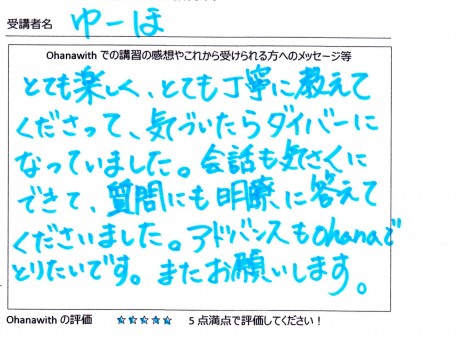 受講者名 ゆーほ
Ohanawith での講習の感想やこれから受けられる方へのメッセージ等
とても楽しく、とても丁寧に教えて
くださって、気づいたらダイバーに
なっていました。会話も気さくに
できて、質問にも明瞭に答えて
くださいました。アドバンスもohanaで
とりたいです。またお願いします。
Ohanawith の評価 ☆☆☆☆☆ 5 点満点で評価してください！